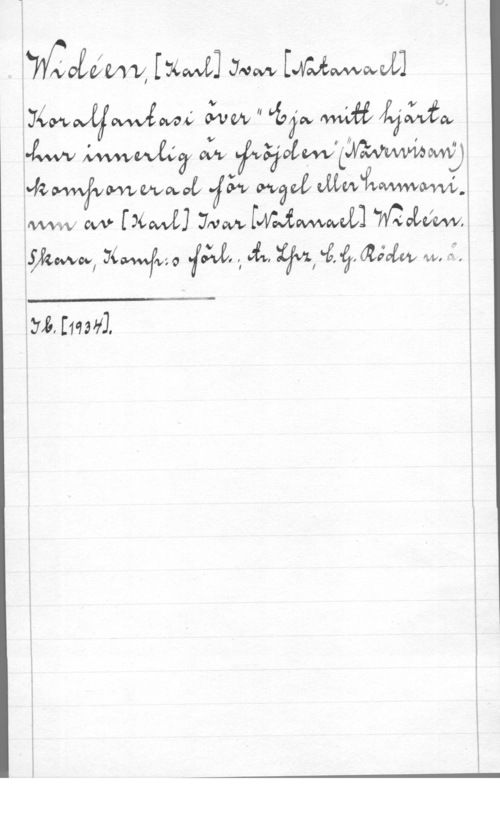 Widéen, [Karl] Ivar [Natanael]
Koralfantasi över "Eja mitt hjärta
hur innerlig är fröjden" ("Nävervisan")
komponerad för orgel eller harmoni-
um av [Karl] Ivar [Natanael] Widéen.
Skara, Komp:s förl.; tr. Lpz, C. G. Röder u. å.
7 s. [1934].